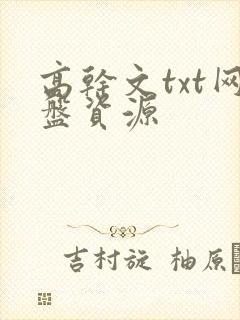 高干文txt网
盘资源
吉村旋 柚原